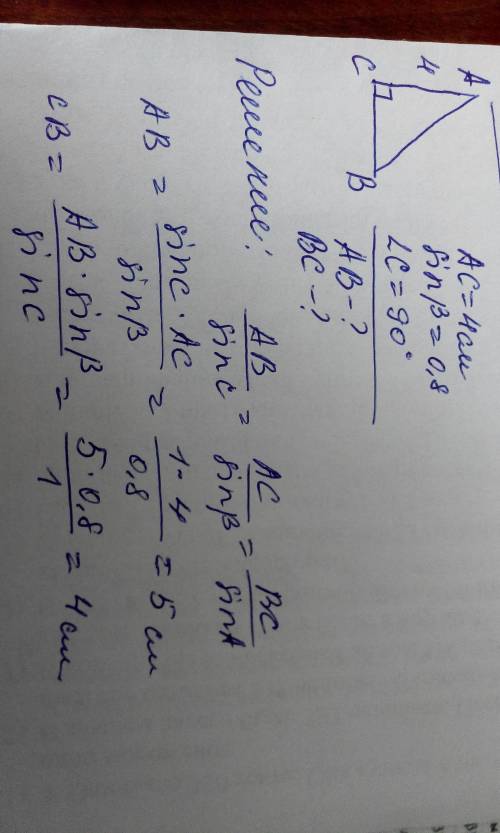 A
4
C
B
AC = 4 см
sinβ = 0,8
∠C = 90°
AB - ?
BC - ?
Решение: AB/sinC = AC/sinβ = BC/sinA
AB = sinC · AC/sinβ = 1 · 4/0,8 = 5 см
CB = AB · sinβ/sinC = 5 · 0,8/1 = 4 см